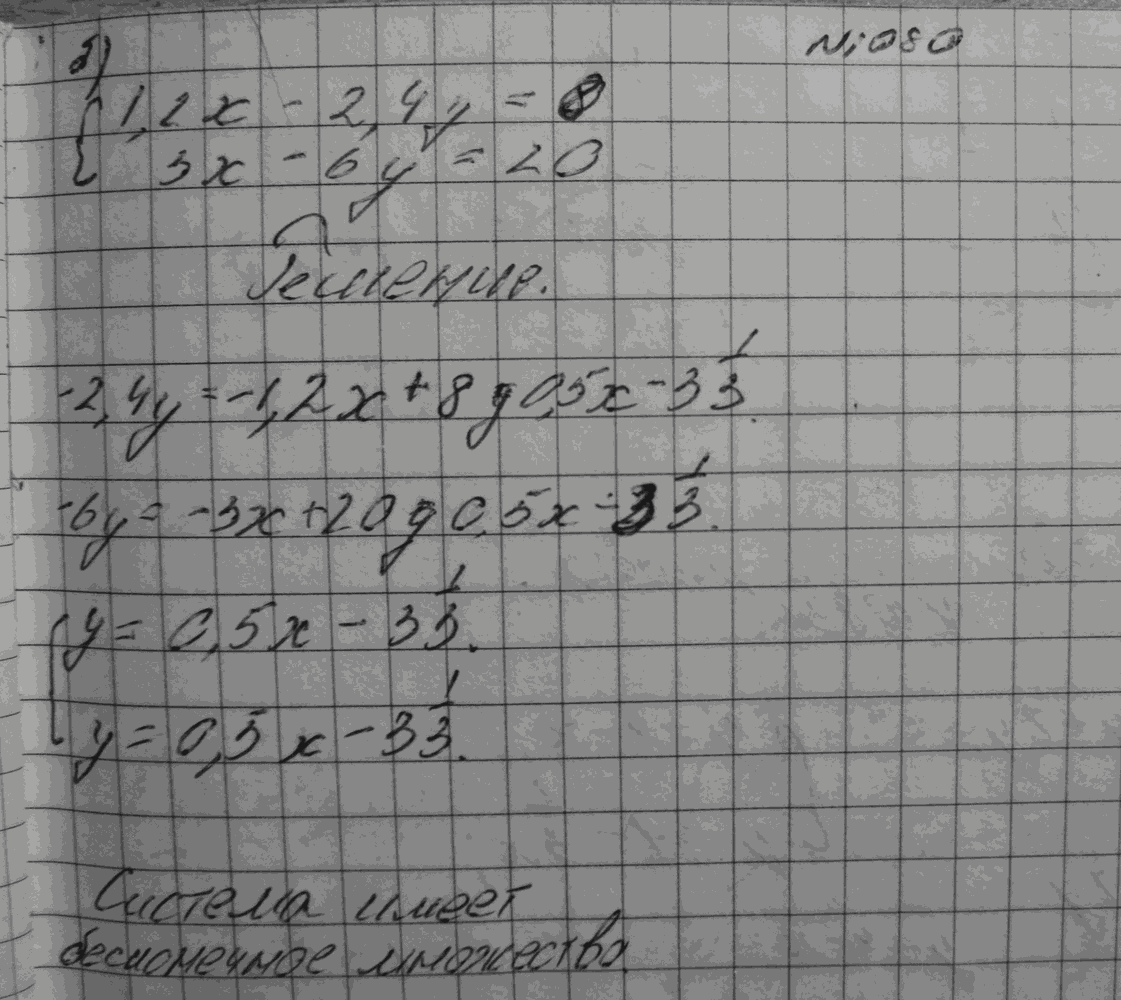 б) N1080
1,2x - 2,4y = 8
3x - 6y = 20
Решение.
-2,4y = -1,2x + 8 y 0,5x - 3 1/3.
-6y = -3x + 20 y 0,5x - 3 1/3.
y = 0,5x - 3 1/3.
y = 0,5x - 3 1/3.
Система имеет
бесконечное множество.